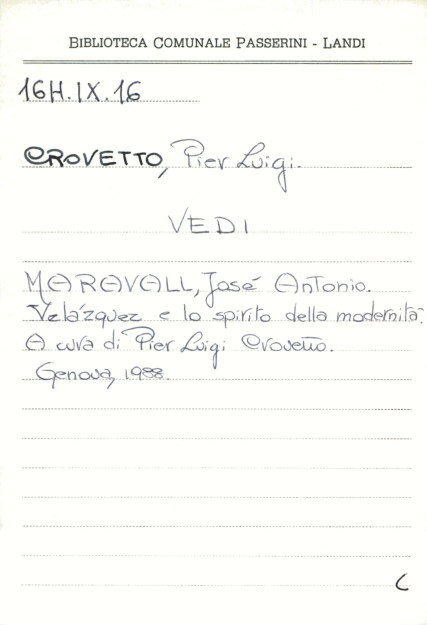 BIBLIOTECA COMUNALE PASSERINI - LANDI
16H.IX.16
CROVETTO, Pier Luigi.
VEDI
MARAVALL, José Antonio.
Velázquez e lo spirito della modernità.
A cura di Pier Luigi Crovetto.
Genova, 1988.
C